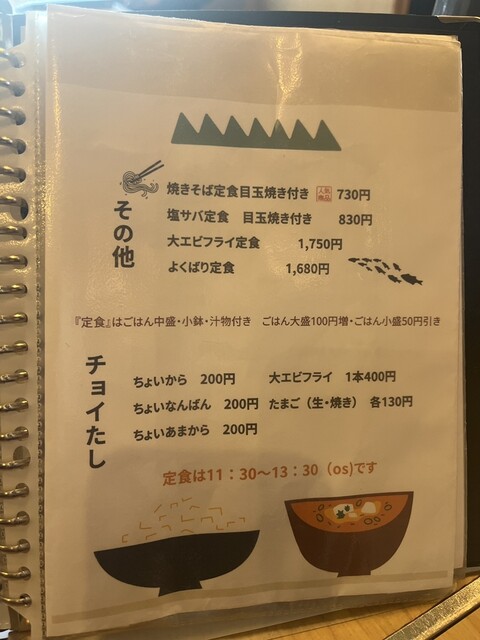 その他
焼きそば定食目玉焼き付き 人気商品 730円
塩サバ定食 目玉焼き付き 830円
大エビフライ定食 1,750円
よくばり定食 1,680円
『定食』はごはん中盛・小鉢・汁物付き ごはん大盛100円増・ごはん小盛50円引き
チョイたし
ちょいから 200円 大エビフライ 1本400円
ちょいなんばん 200円 たまご（生・焼き） 各130円
ちょいあまから 200円
定食は11：30～13：30（os)です